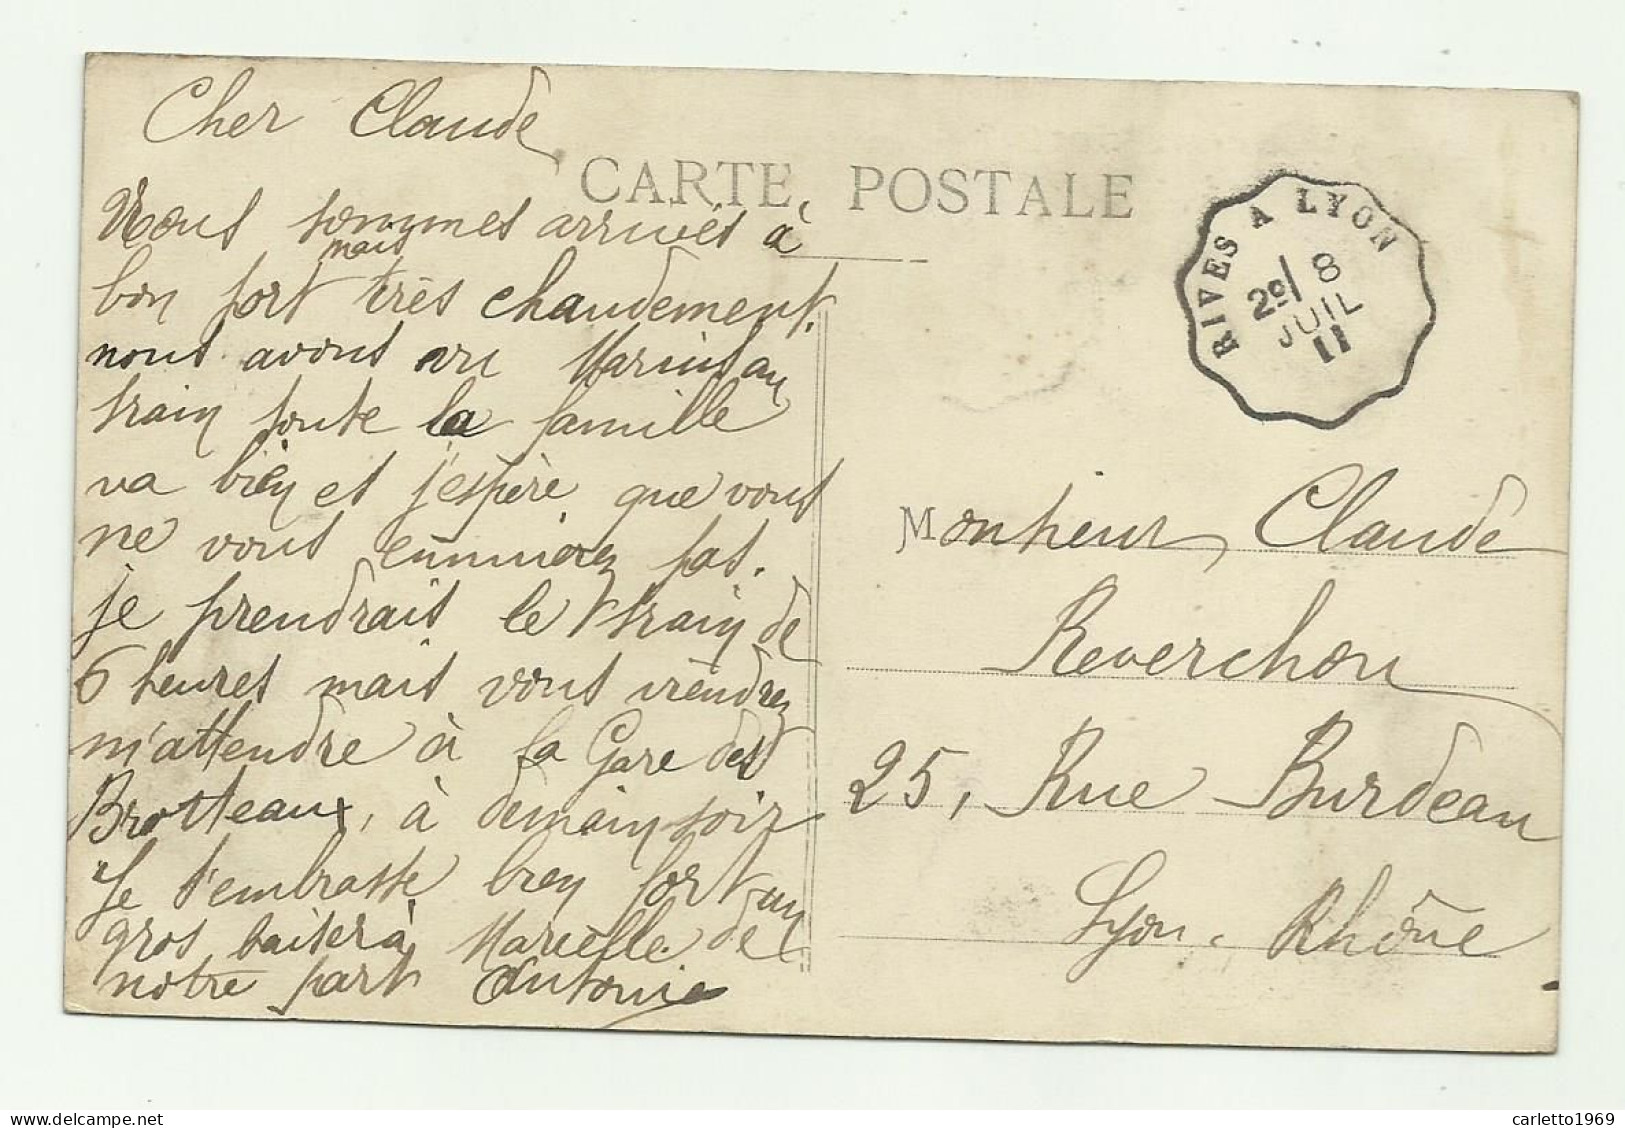 Cher Claude
CARTE POSTALE
Nous sommes arrivés à
mais
bon port très chaudement.
nous avons vu Marius au
train toute la famille
va bien et j'espère que vous
ne vous ennuierez pas.
je prendrais le train de
6 heures mais vous viendrez
m'attendre à la Gare des
Brotteaux, à demain soir
Je t'embrasse bien fort un
gros baiser à Marcelle de
notre part Antonie
RIVES A LYON
2º/ 8
JUIL
11
Monsieur Claude
Reverchon
25, Rue Burdeau
Lyon. Rhône
carletto1969